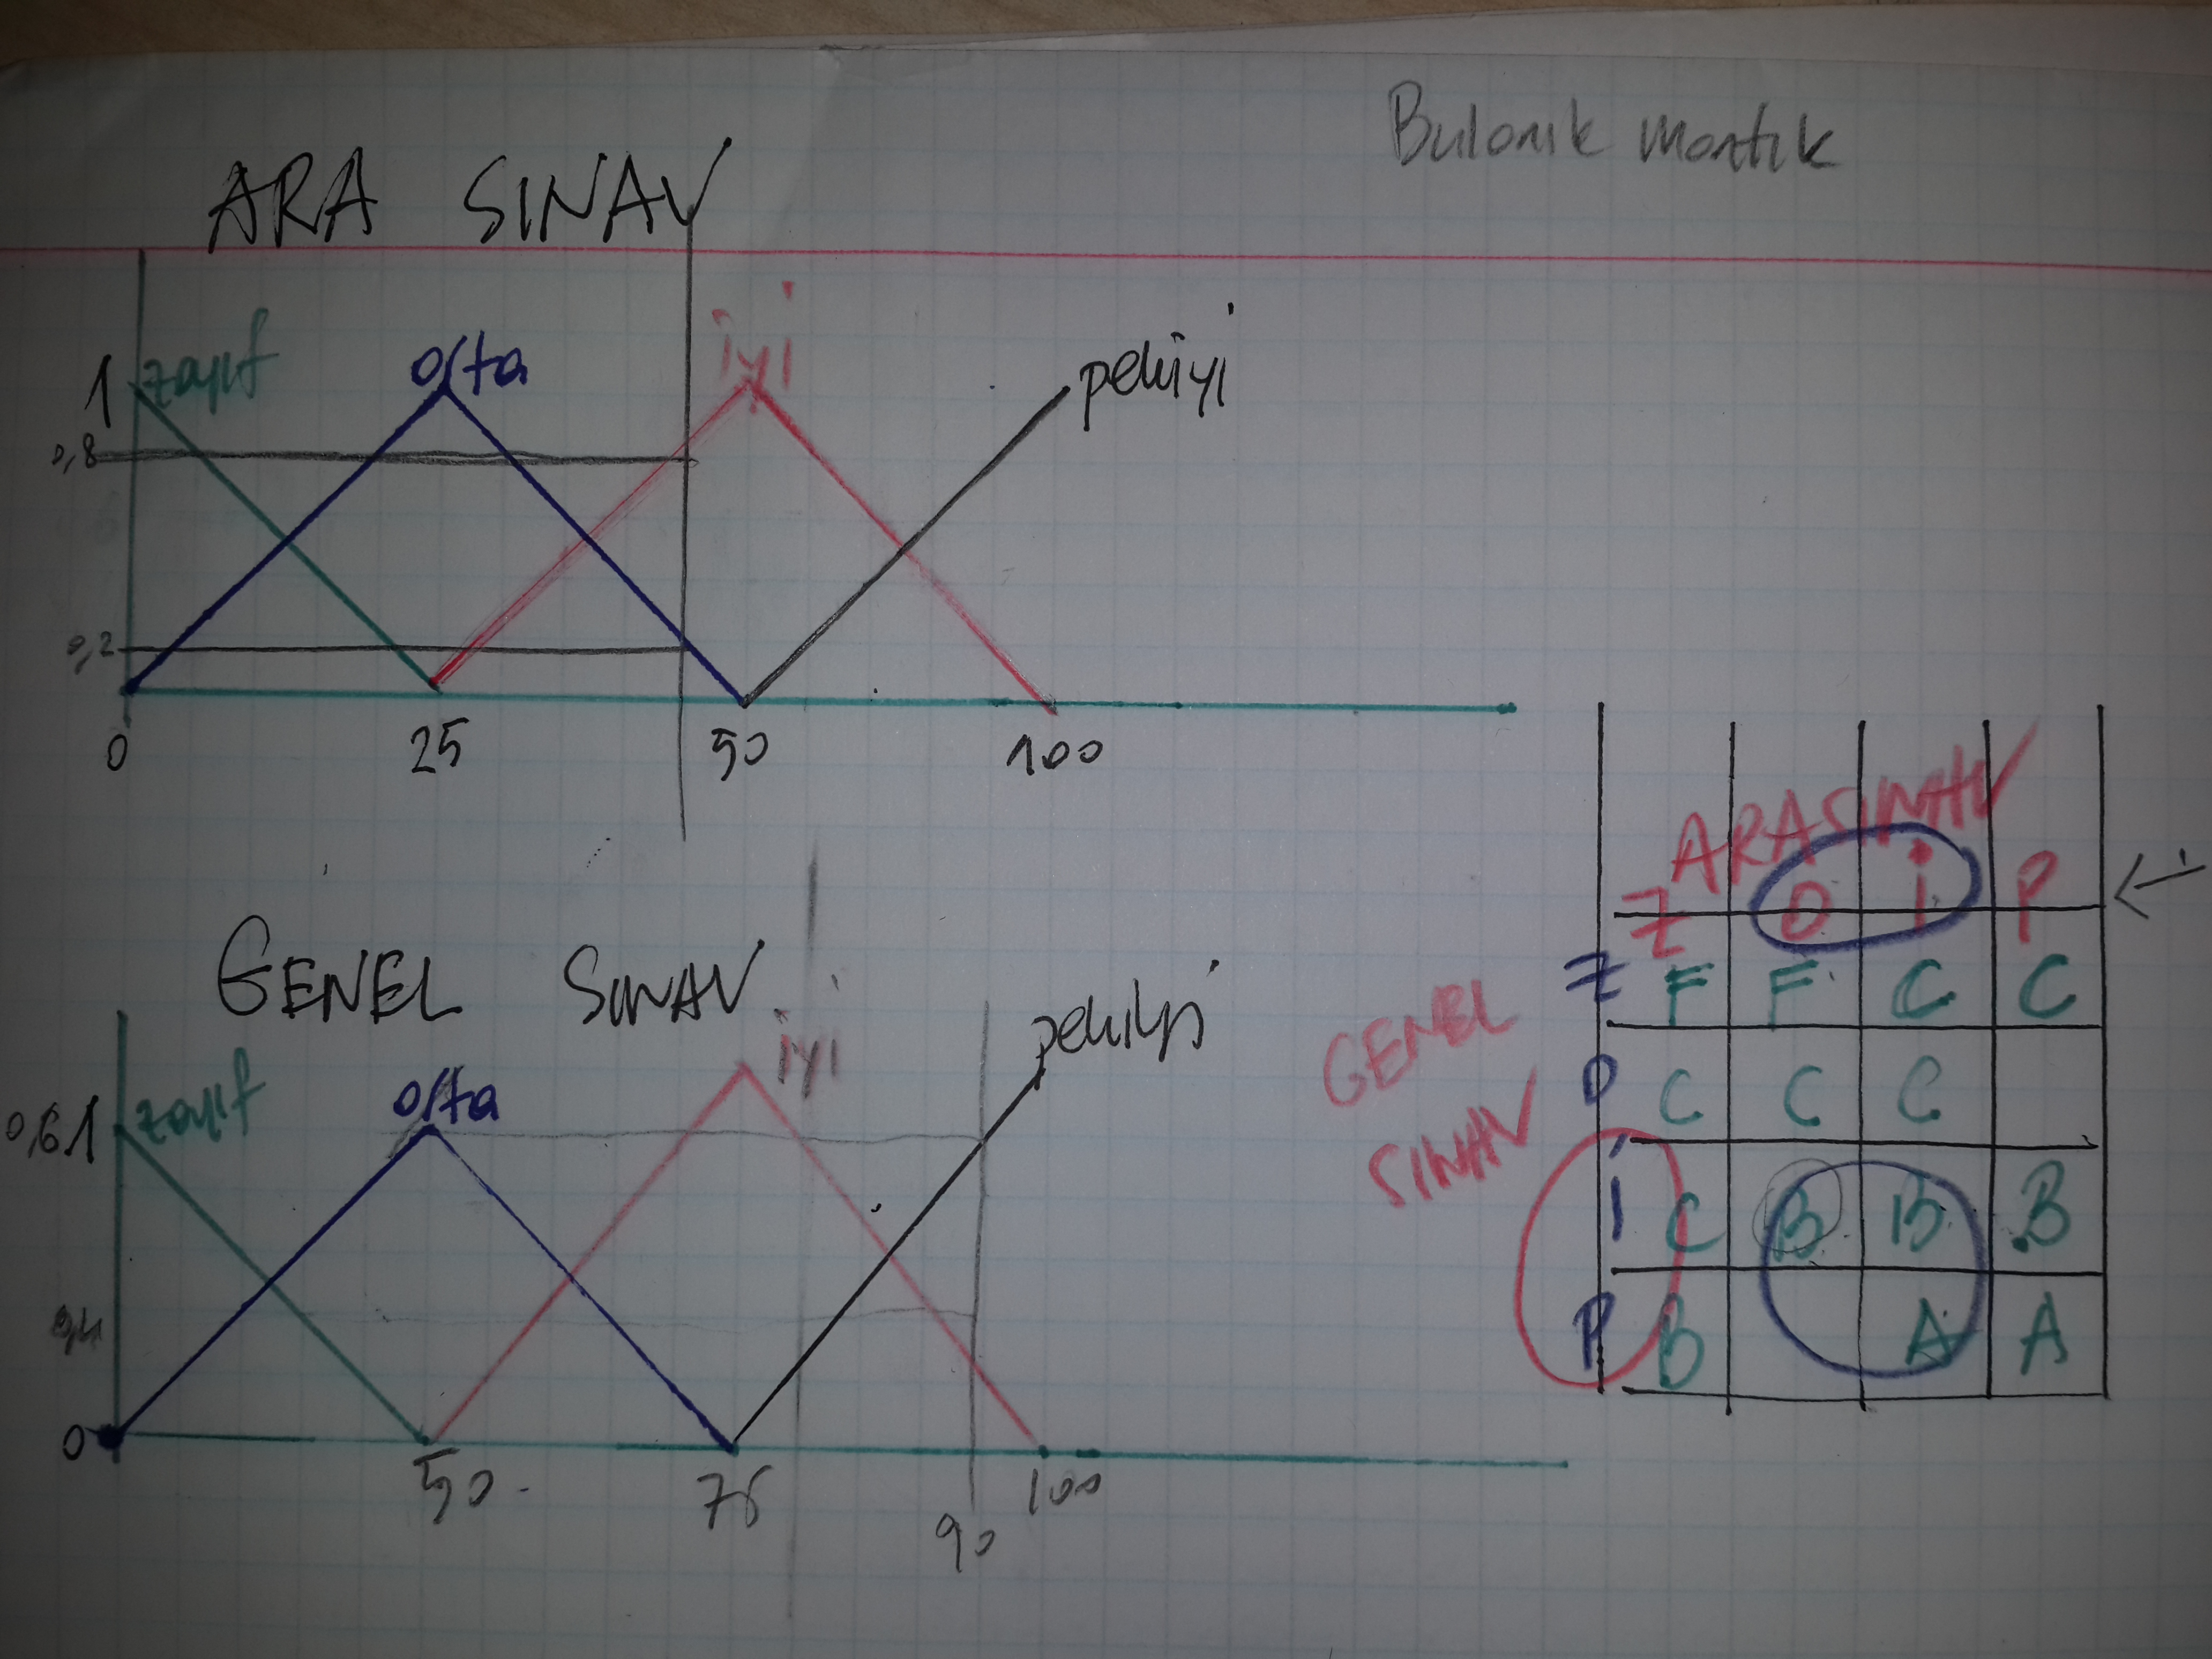 Bulanık mantık
ARA SINAV
zayıf orta iyi pekiyi
1
0,8
0,2
0 25 50 100
GENEL SINAV
zayıf orta iyi pekiyi
0,6 1
0,4
0
50 75 90 100
ARASINAV
Z O İ P
GENEL SINAV
Z F F C C
O C C C
İ C B B B
P B A A